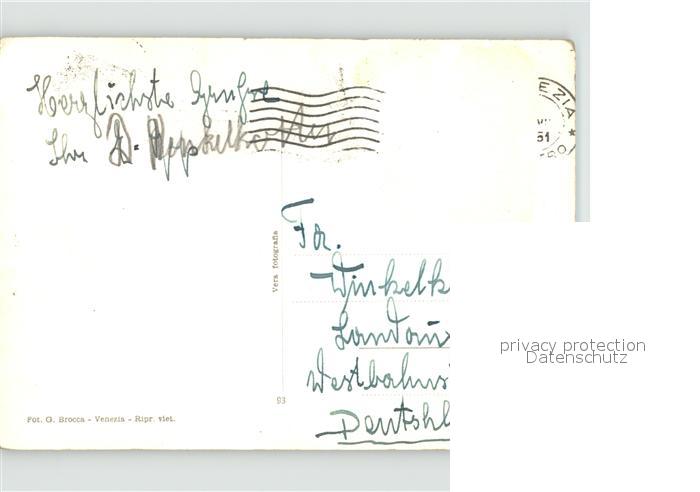 Herzlichste Grüße
Ihr
EZIA
VII
51
Vera fotografia
Fa.
Winkelk
Landau
Westbahns
Deutschl
93
Fot. G. Brocca - Venezia - Ripr. viet.
privacy protection
Datenschutz